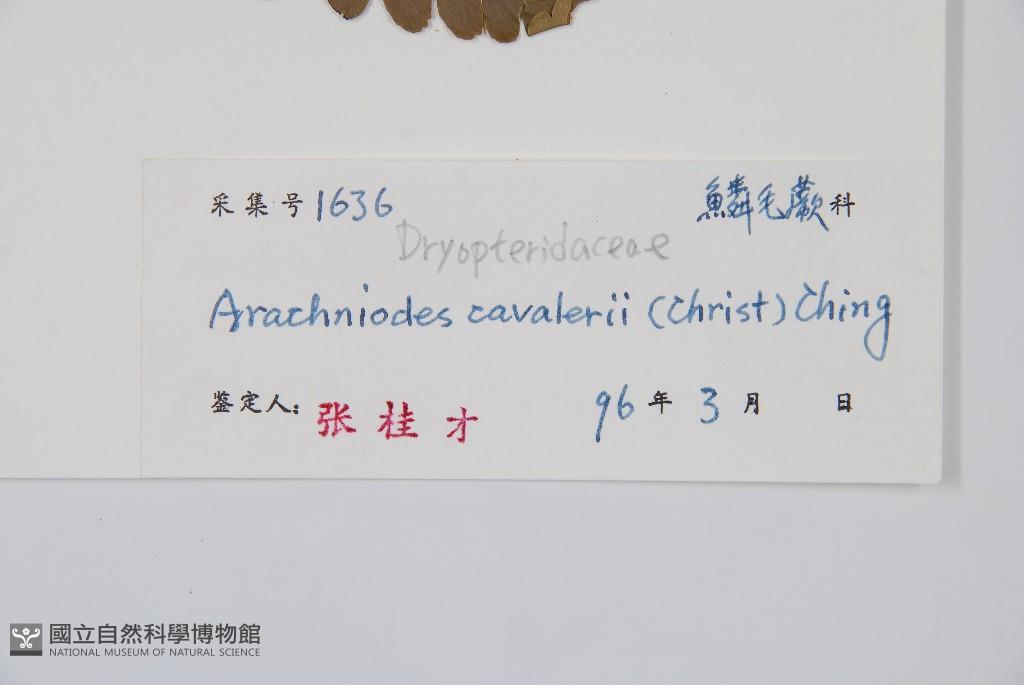 采集号 1636 鱗毛蕨科
Dryopteridaceae
Arachniodes cavalerii (Christ) Ching
鉴定人: 张桂才 96年3月 日
國立自然科學博物館
NATIONAL MUSEUM OF NATURAL SCIENCE